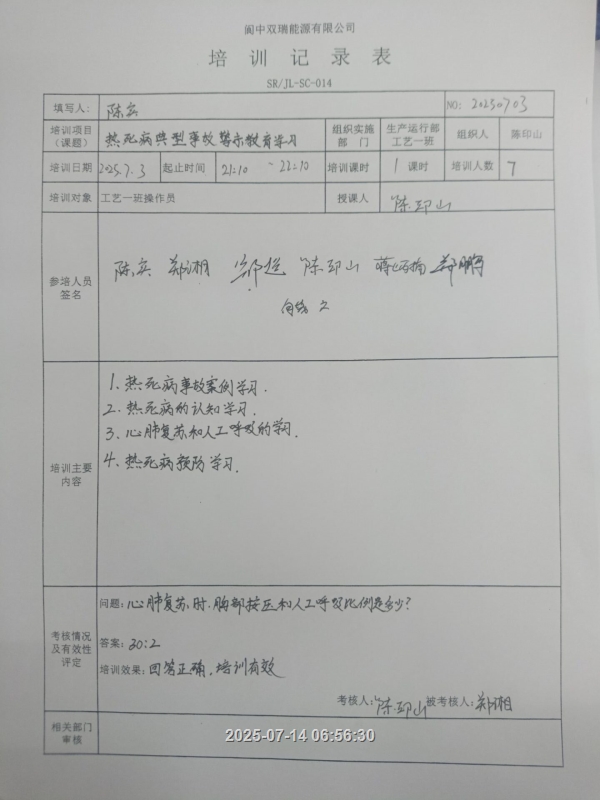 阆中双瑞能源有限公司
培训记录表
SR/JL-SC-014
填写人： 陈宾 NO: 20250703
培训项目（课题） 热死病典型事故警示教育学习 组织实施部门 生产运行部工艺一班 组织人 陈印山
培训日期 2025.7.3 起止时间 21:10 - 22:10 培训课时 1 课时 培训人数 7
培训对象 工艺一班操作员 授课人 陈印山
参培人员签名 陈宾 郑湘 陈印山
培训主要内容
1. 热死病事故案例学习.
2. 热死病的认知学习.
3. 心肺复苏和人工呼吸的学习.
4. 热死病预防学习.
考核情况及有效性评定
问题：心肺复苏时.胸部按压和人工呼吸比例是多少?
答案：30:2
培训效果：回答正确，培训有效
考核人：陈印山 被考核人：郑湘
相关部门审核
2025-07-14 06:56:30